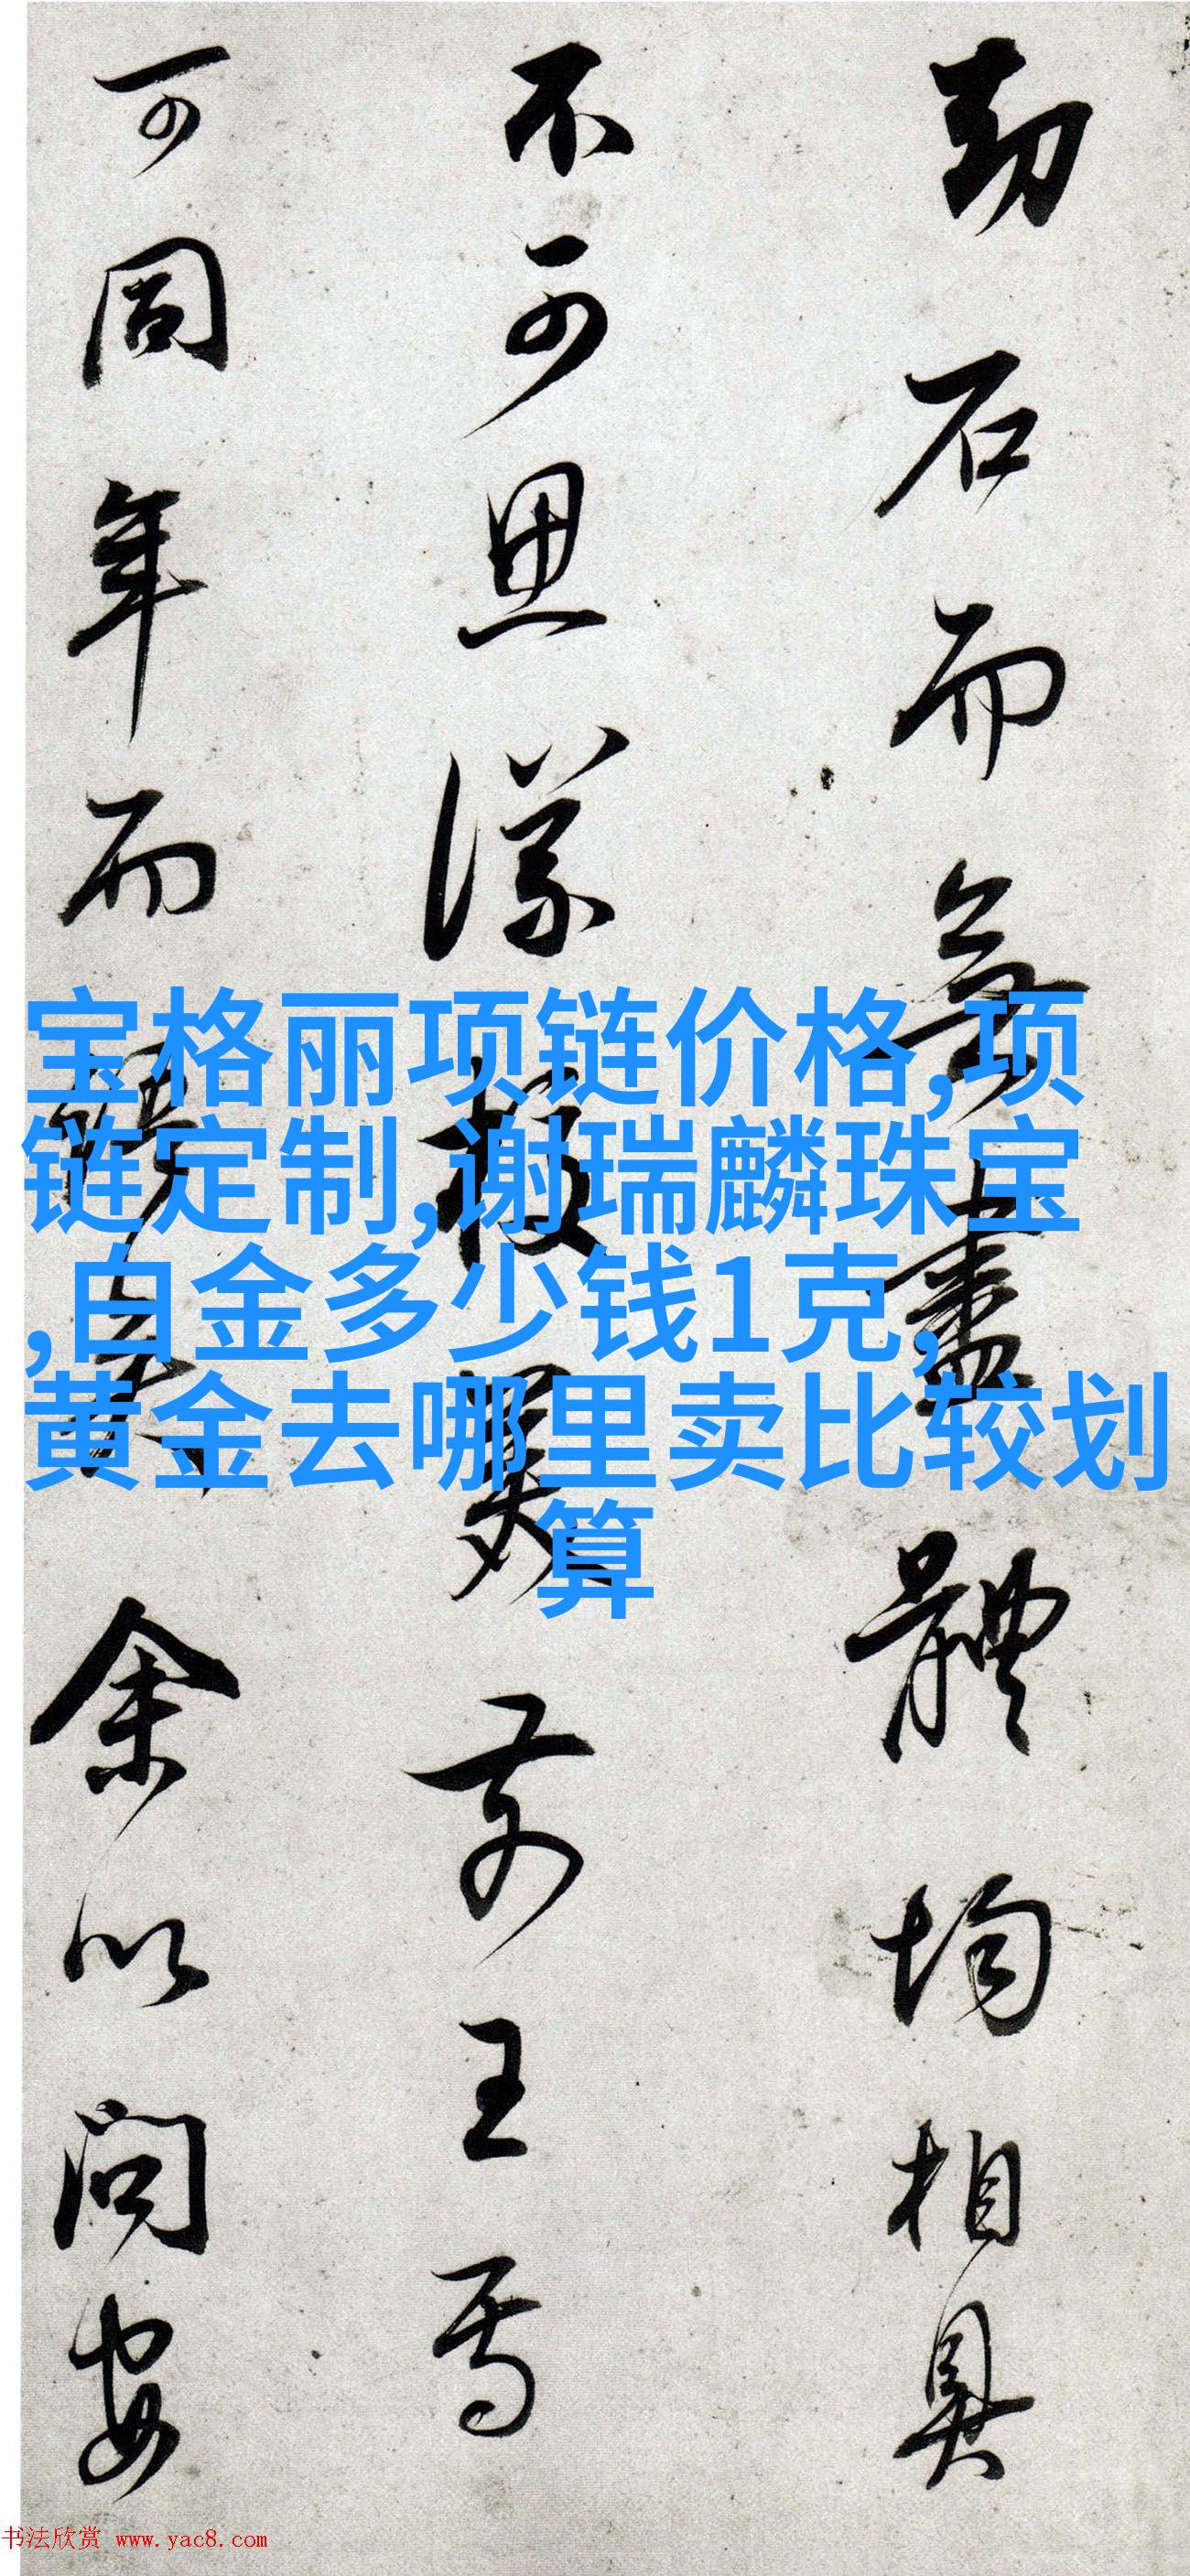 劫石而無盡體均相具
不可思議
前王焉
可同年而
余以问安
宝格丽项链价格,项
链定制,谢瑞麟珠宝
,白金多少钱1克,
黄金去哪里卖比较划
算
书法欣赏 www.yac8.com